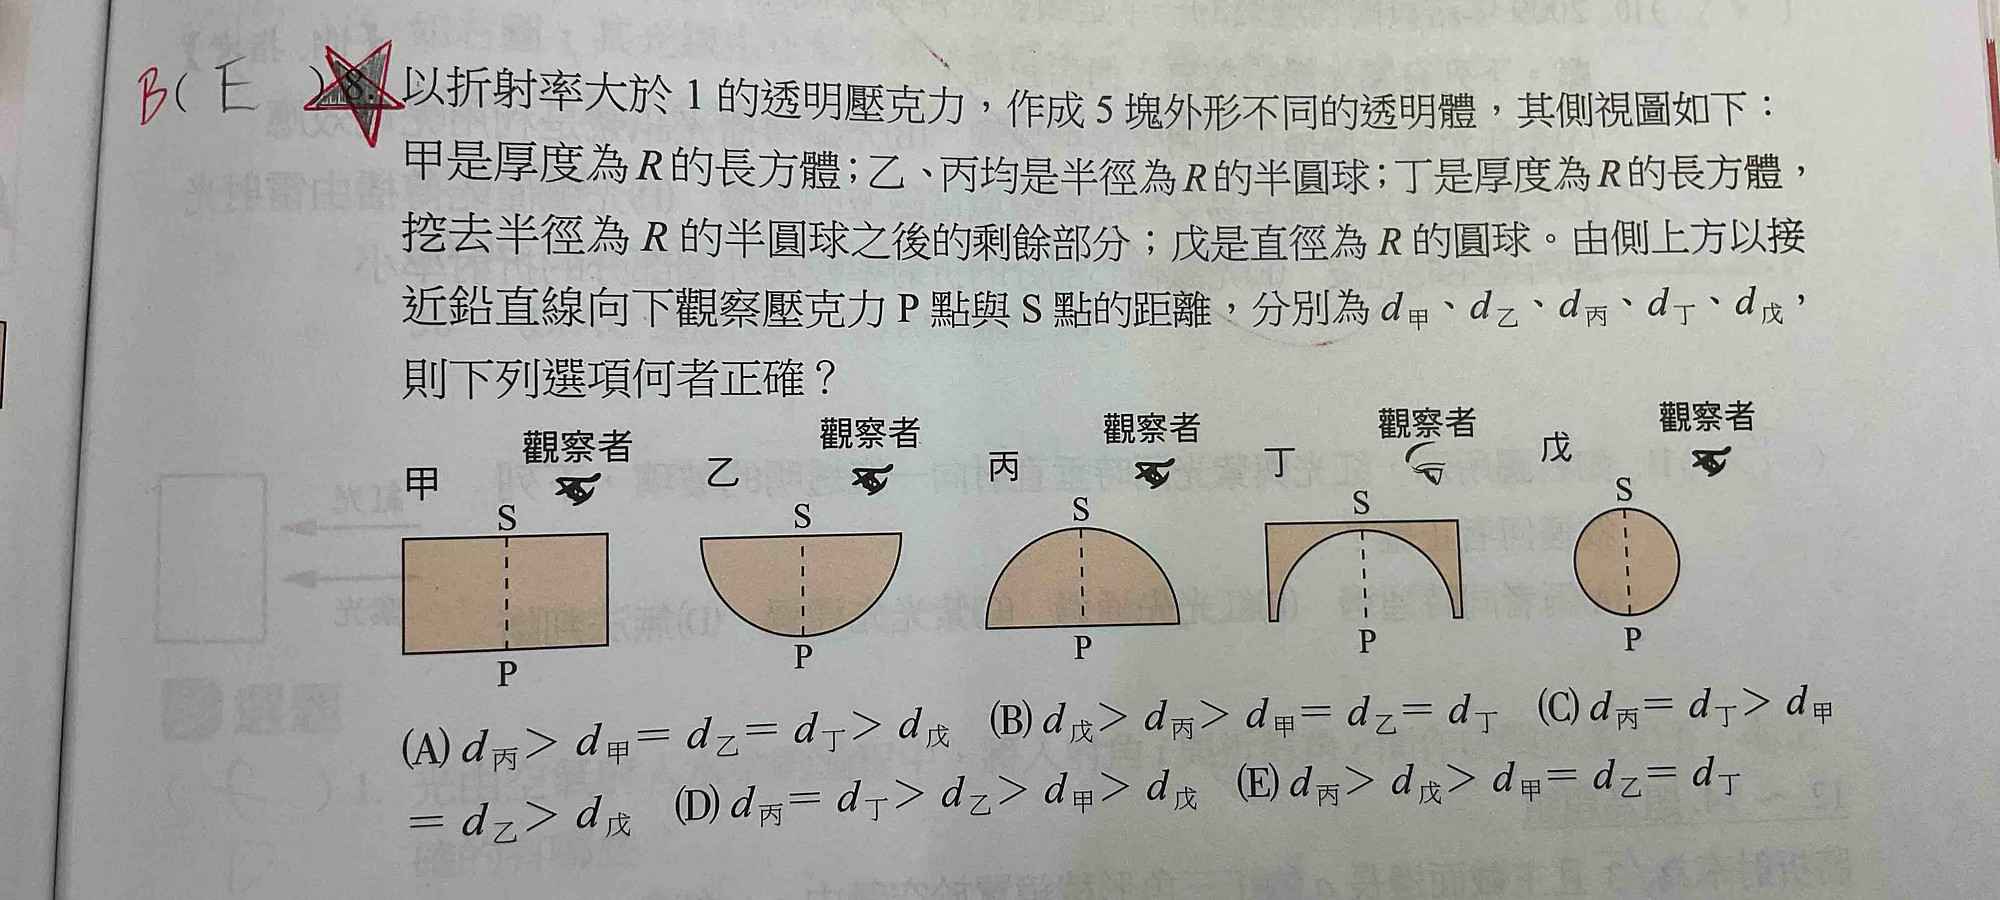 B( E )8. 以折射率大於 1 的透明壓克力，作成 5 塊外形不同的透明體，其側視圖如下：
甲是厚度為 R 的長方體；乙、丙均是半徑為 R 的半圓球；丁是厚度為 R 的長方體，
挖去半徑為 R 的半圓球之後的剩餘部分；戊是直徑為 R 的圓球。由側上方以接
近鉛直線向下觀察壓克力 P 點與 S 點的距離，分別為 d甲、d乙、d丙、d丁、d戊，
則下列選項何者正確？
觀察者 觀察者 觀察者 觀察者 觀察者
甲 乙 丙 丁 戊
S S S S S
P P P P P
(A) d丙＞ d甲＝ d乙＝ d丁＞ d戊 (B) d戊＞ d丙＞ d甲＝ d乙＝ d丁 (C) d丙＝ d丁＞ d甲
＝ d乙＞ d戊 (D) d丙＝ d丁＞ d乙＞ d甲＞ d戊 (E) d丙＞ d戊＞ d甲＝ d乙＝ d丁